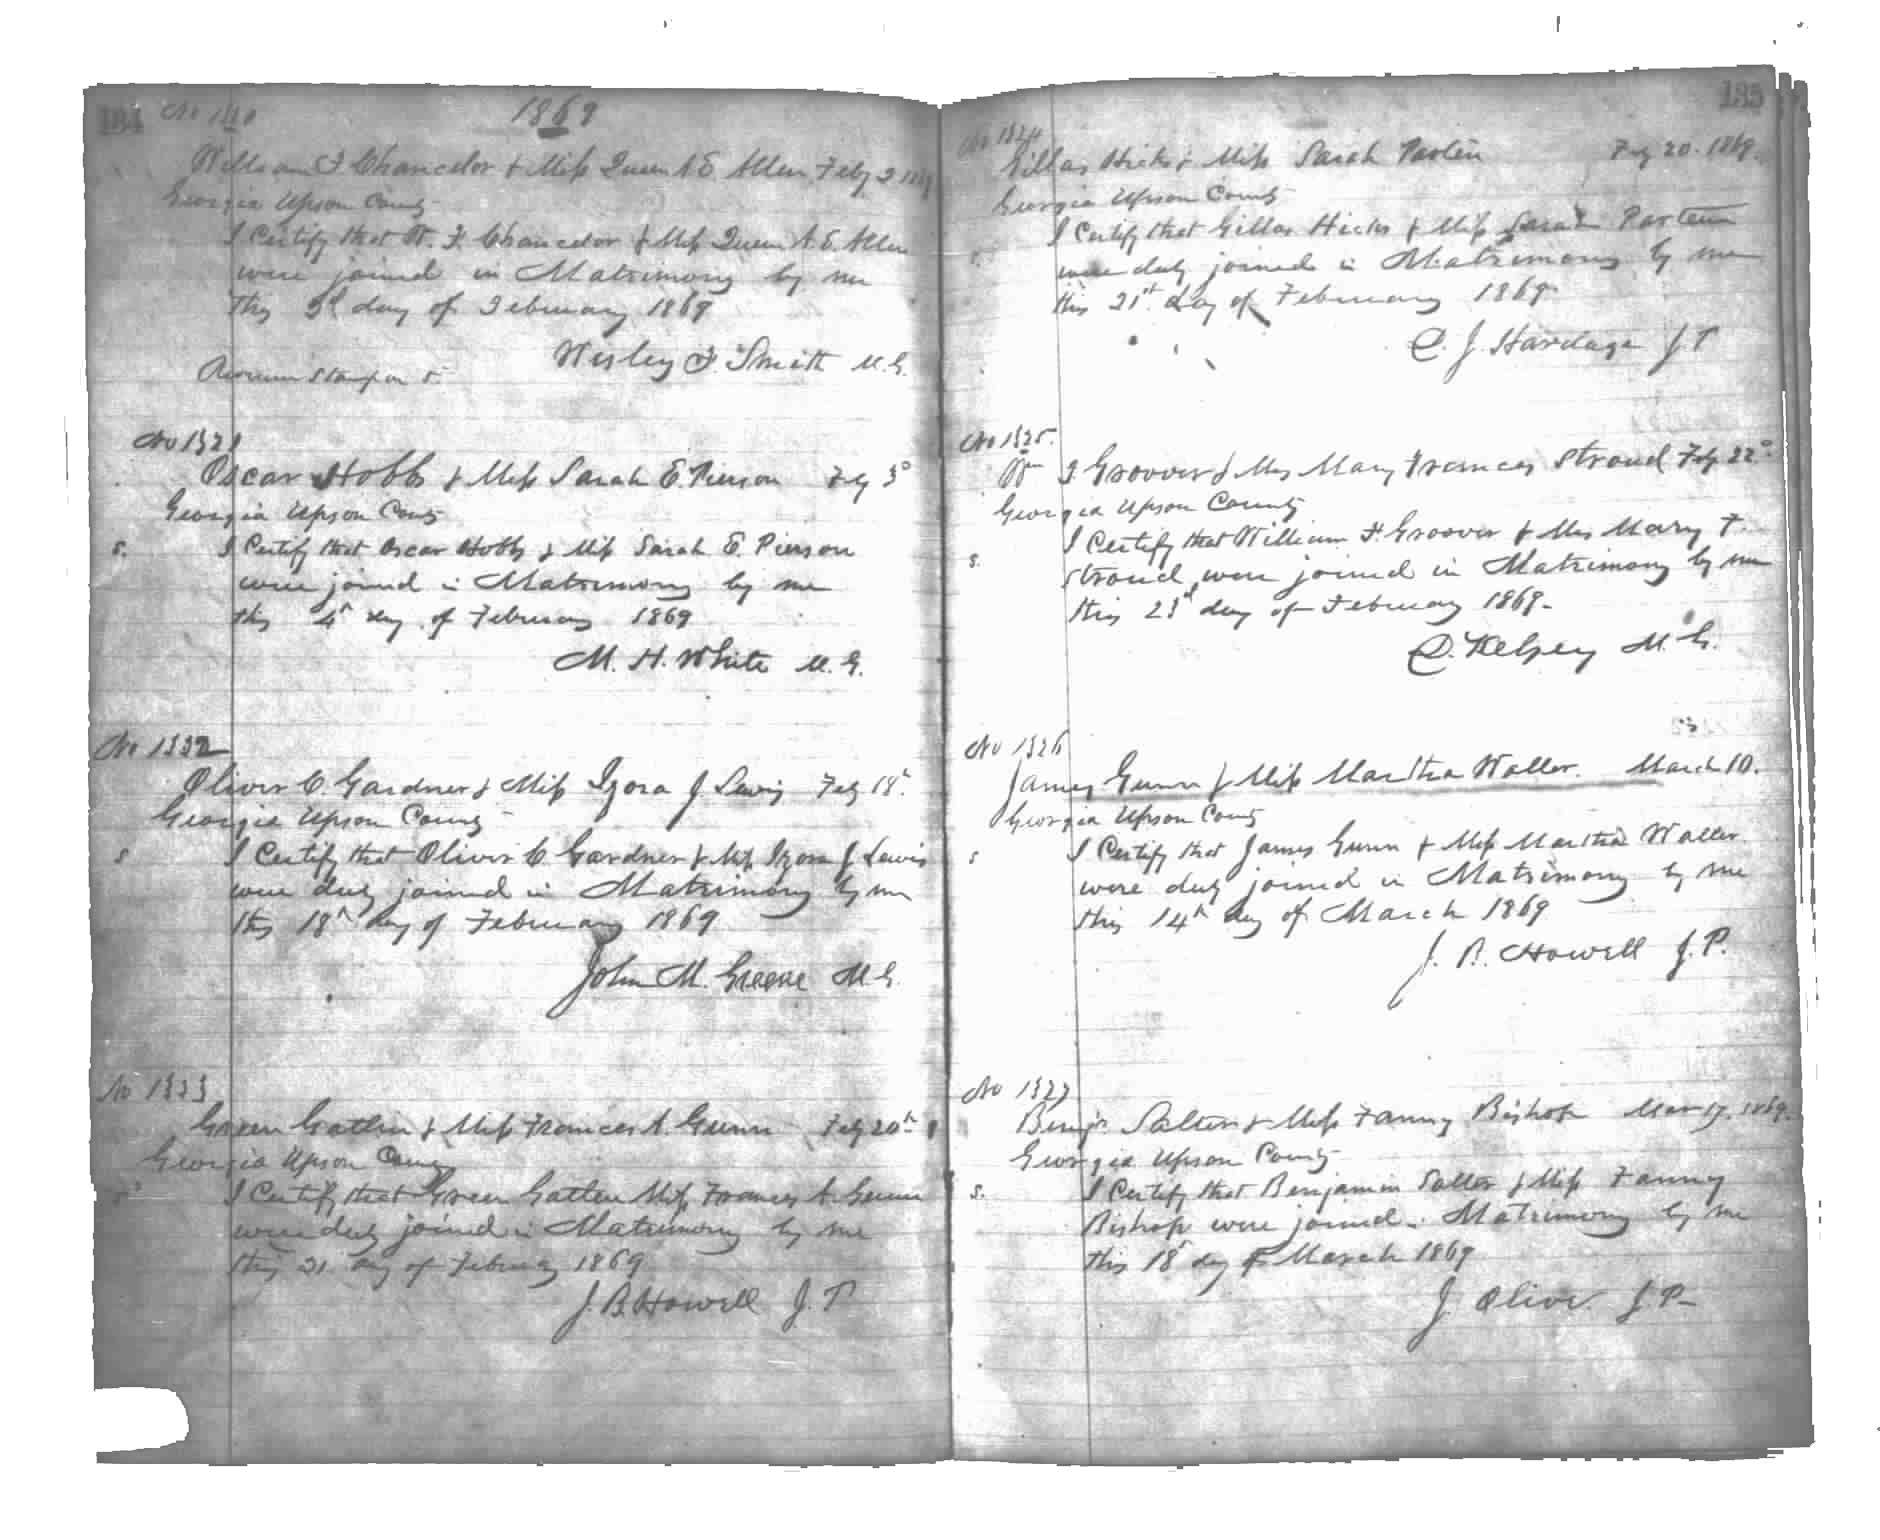 134
1869
William F Chancelor & Miss Queen A E. Allen Feby 2 1869
Georgia Upson County
I Certify that W. F. Chancelor & Miss Queen A. E. Allen
were joined in Matrimony by me
this 3d day of February 1869
Wesley F. Smith M. G.
Revenue Stamp on
No 1321
Oscar Hobbs & Miss Sarah E. Pierson Feby 3d
Georgia Upson County
S. I Certify that Oscar Hobbs & Miss Sarah E. Pierson
were joined in Matrimony by me
this 4th day of February 1869
M. H. White M. G.
No 1332
Oliver C. Gardner & Miss Izora J Lewis Feby 18th
Georgia Upson County
S I Certify that Oliver C. Gardner & Miss Izora J Lewis
were duly joined in Matrimony by me
this 18th day of February 1869
John M. Greene M. G.
No 1323
Green Gatlin & Miss Frances A. Gunn Feby 20th
Georgia Upson County
S I Certify that Green Gatlin Miss Frances A. Gunn
were duly joined in Matrimony by me
this 21 day of February 1869
J. B. Howell J. P
135
No 1324
Gillas Hicks & Miss Sarah Parten Feby 20. 1869.
Georgia Upson County
I Certify that Gillas Hicks & Miss Sarah Parten
were duly joined in Matrimony by me
this 21st day of February 1869
C. J. Hardage J P
No 1325.
Wm F Groover & Mrs Mary Frances Stroud Feby 22d
Georgia Upson County
S. I Certify that William F Groover & Mrs Mary F.
Stroud were joined in Matrimony by me
this 23d day of February 1869.
C. Kelsey M. G.
No 1326
James Gunn & Miss Martha Waller. March 10.
Georgia Upson County
S I Certify that James Gunn & Miss Martha Waller
were duly joined in Matrimony by me
this 14th day of March 1869
J. B. Howell J. P.
No 1327
Benjn. Salter & Miss Fanny Bishop Mar 17. 1869.
Georgia Upson County
S. I Certify that Benjamin Salter & Miss Fanny
Bishop were joined in Matrimony by me
this 18th day of March 1869
J Oliver J. P-